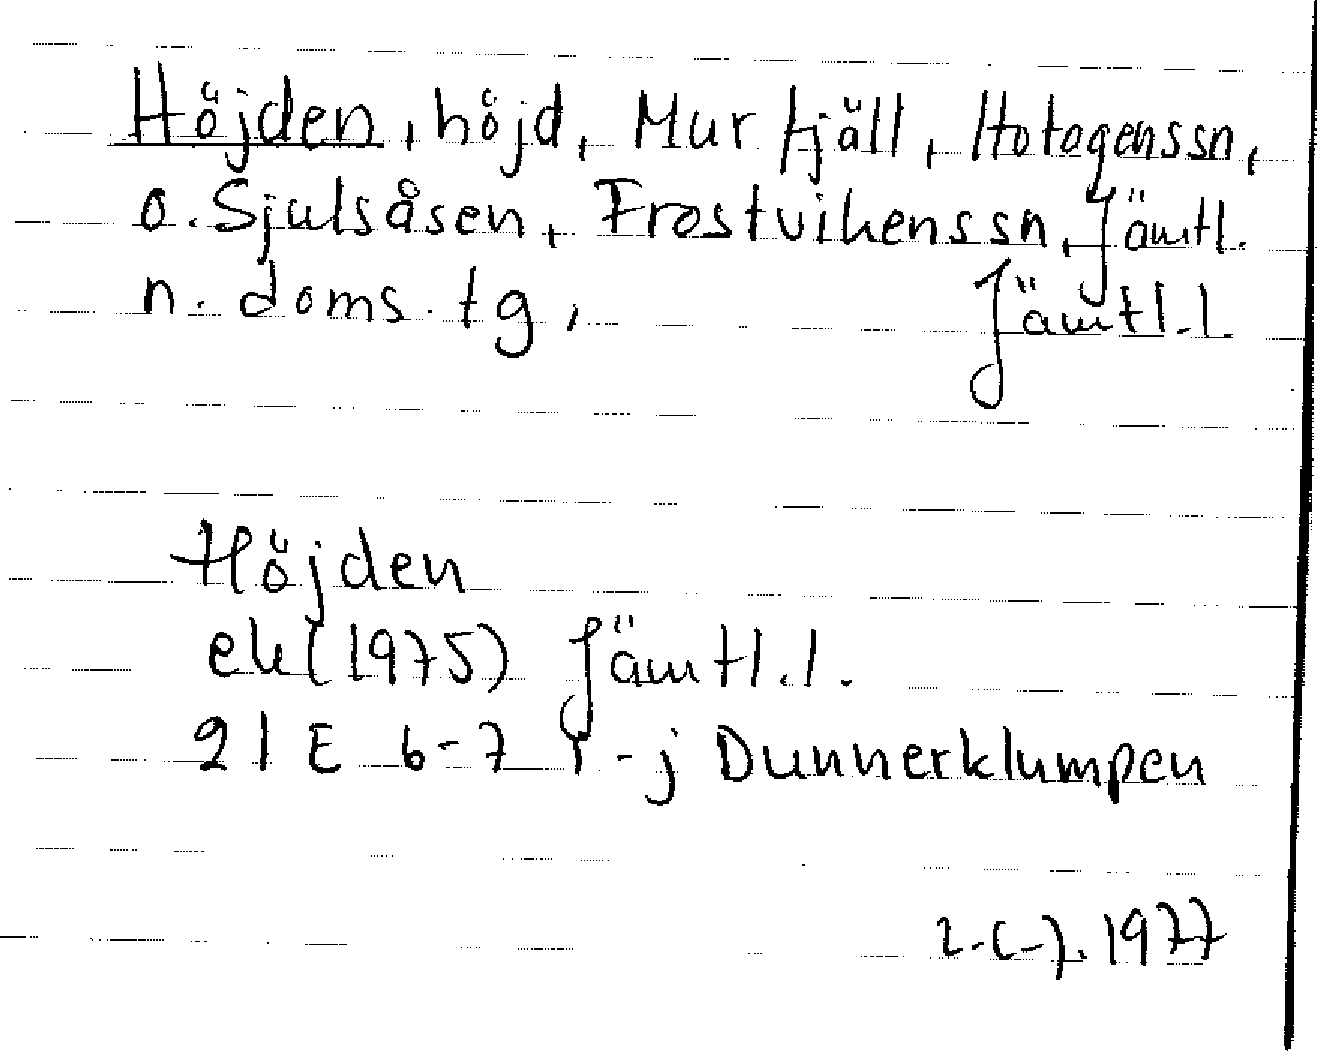 Höjden, höjd, Murfjäll, Hotagenssn,
o. Sjulsåsen, Frostvikenssn, Jämtl.
n. doms. tg, Jämtl.l
Höjden
ek (1975) Jämtl.l.
21 E 6-7 i-j Dunnerklumpen
1977